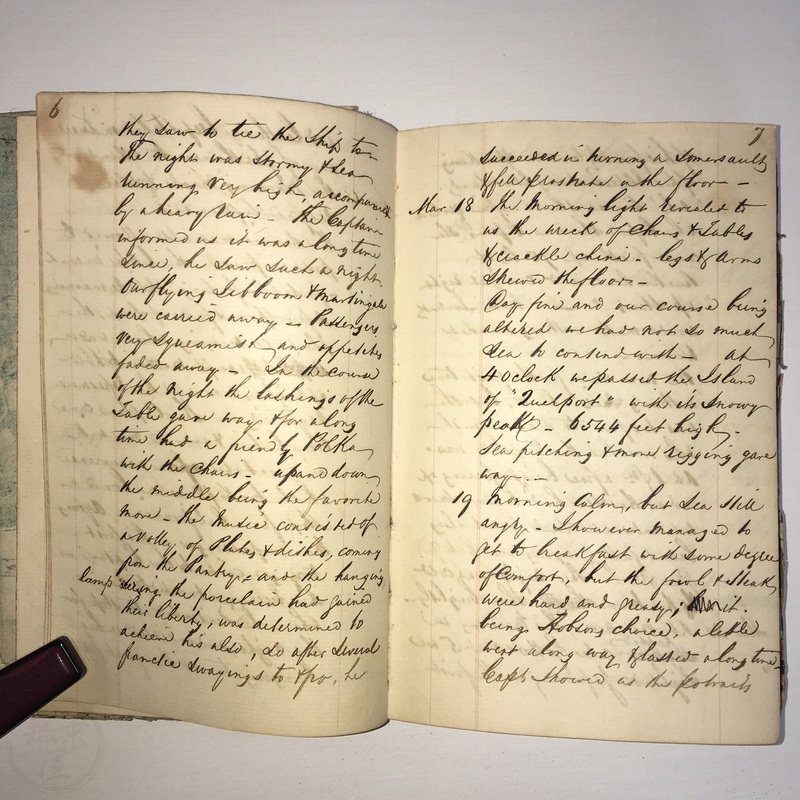 6
they saw to tie the Ship to-
The night was stormy & sea
running very high, accompanied
by a heavy rain - the Captain
informed us it was a long time
since, he saw such a night.
Our flying Jibboom & martingale
were carried away - Passengers
very squeamish and appetites
faded away - In the course
of the night the lashings of the
Table gave way & for a long
time had a friendly Polka
with the Chairs - up and down
the middle being the favorite
move - the music consisted of
a volley of Plates & dishes, coming
from the Pantry, - and the hanging
lamp seeing the porcelain had gained
their liberty, was determined to
achieve his also, So after several
frantic swayings to & fro, he
7
succeeded in turning a Somersault
& fell prostrate on the floor -
Mar 18 The Morning light revealed to
us the wreck of Chairs & Tables
& crackle china - legs & arms
strewed the floor -
Day fine and our course being
altered we had not so much
Sea to contend with - at
4 oclock we passed the Island
of "Quelport" with its Snowy
peak - 6544 feet high -
Sea pitching & more rigging gave
way. -
19 Morning Calm, but Sea Still
angry - I however managed to
get to breakfast with some degree
of Comfort, but the fowl & Steak
were hard and greasy; it
being Hobsons choice, a little
went a long way & lasted a long time
Capt Showed us the portraits